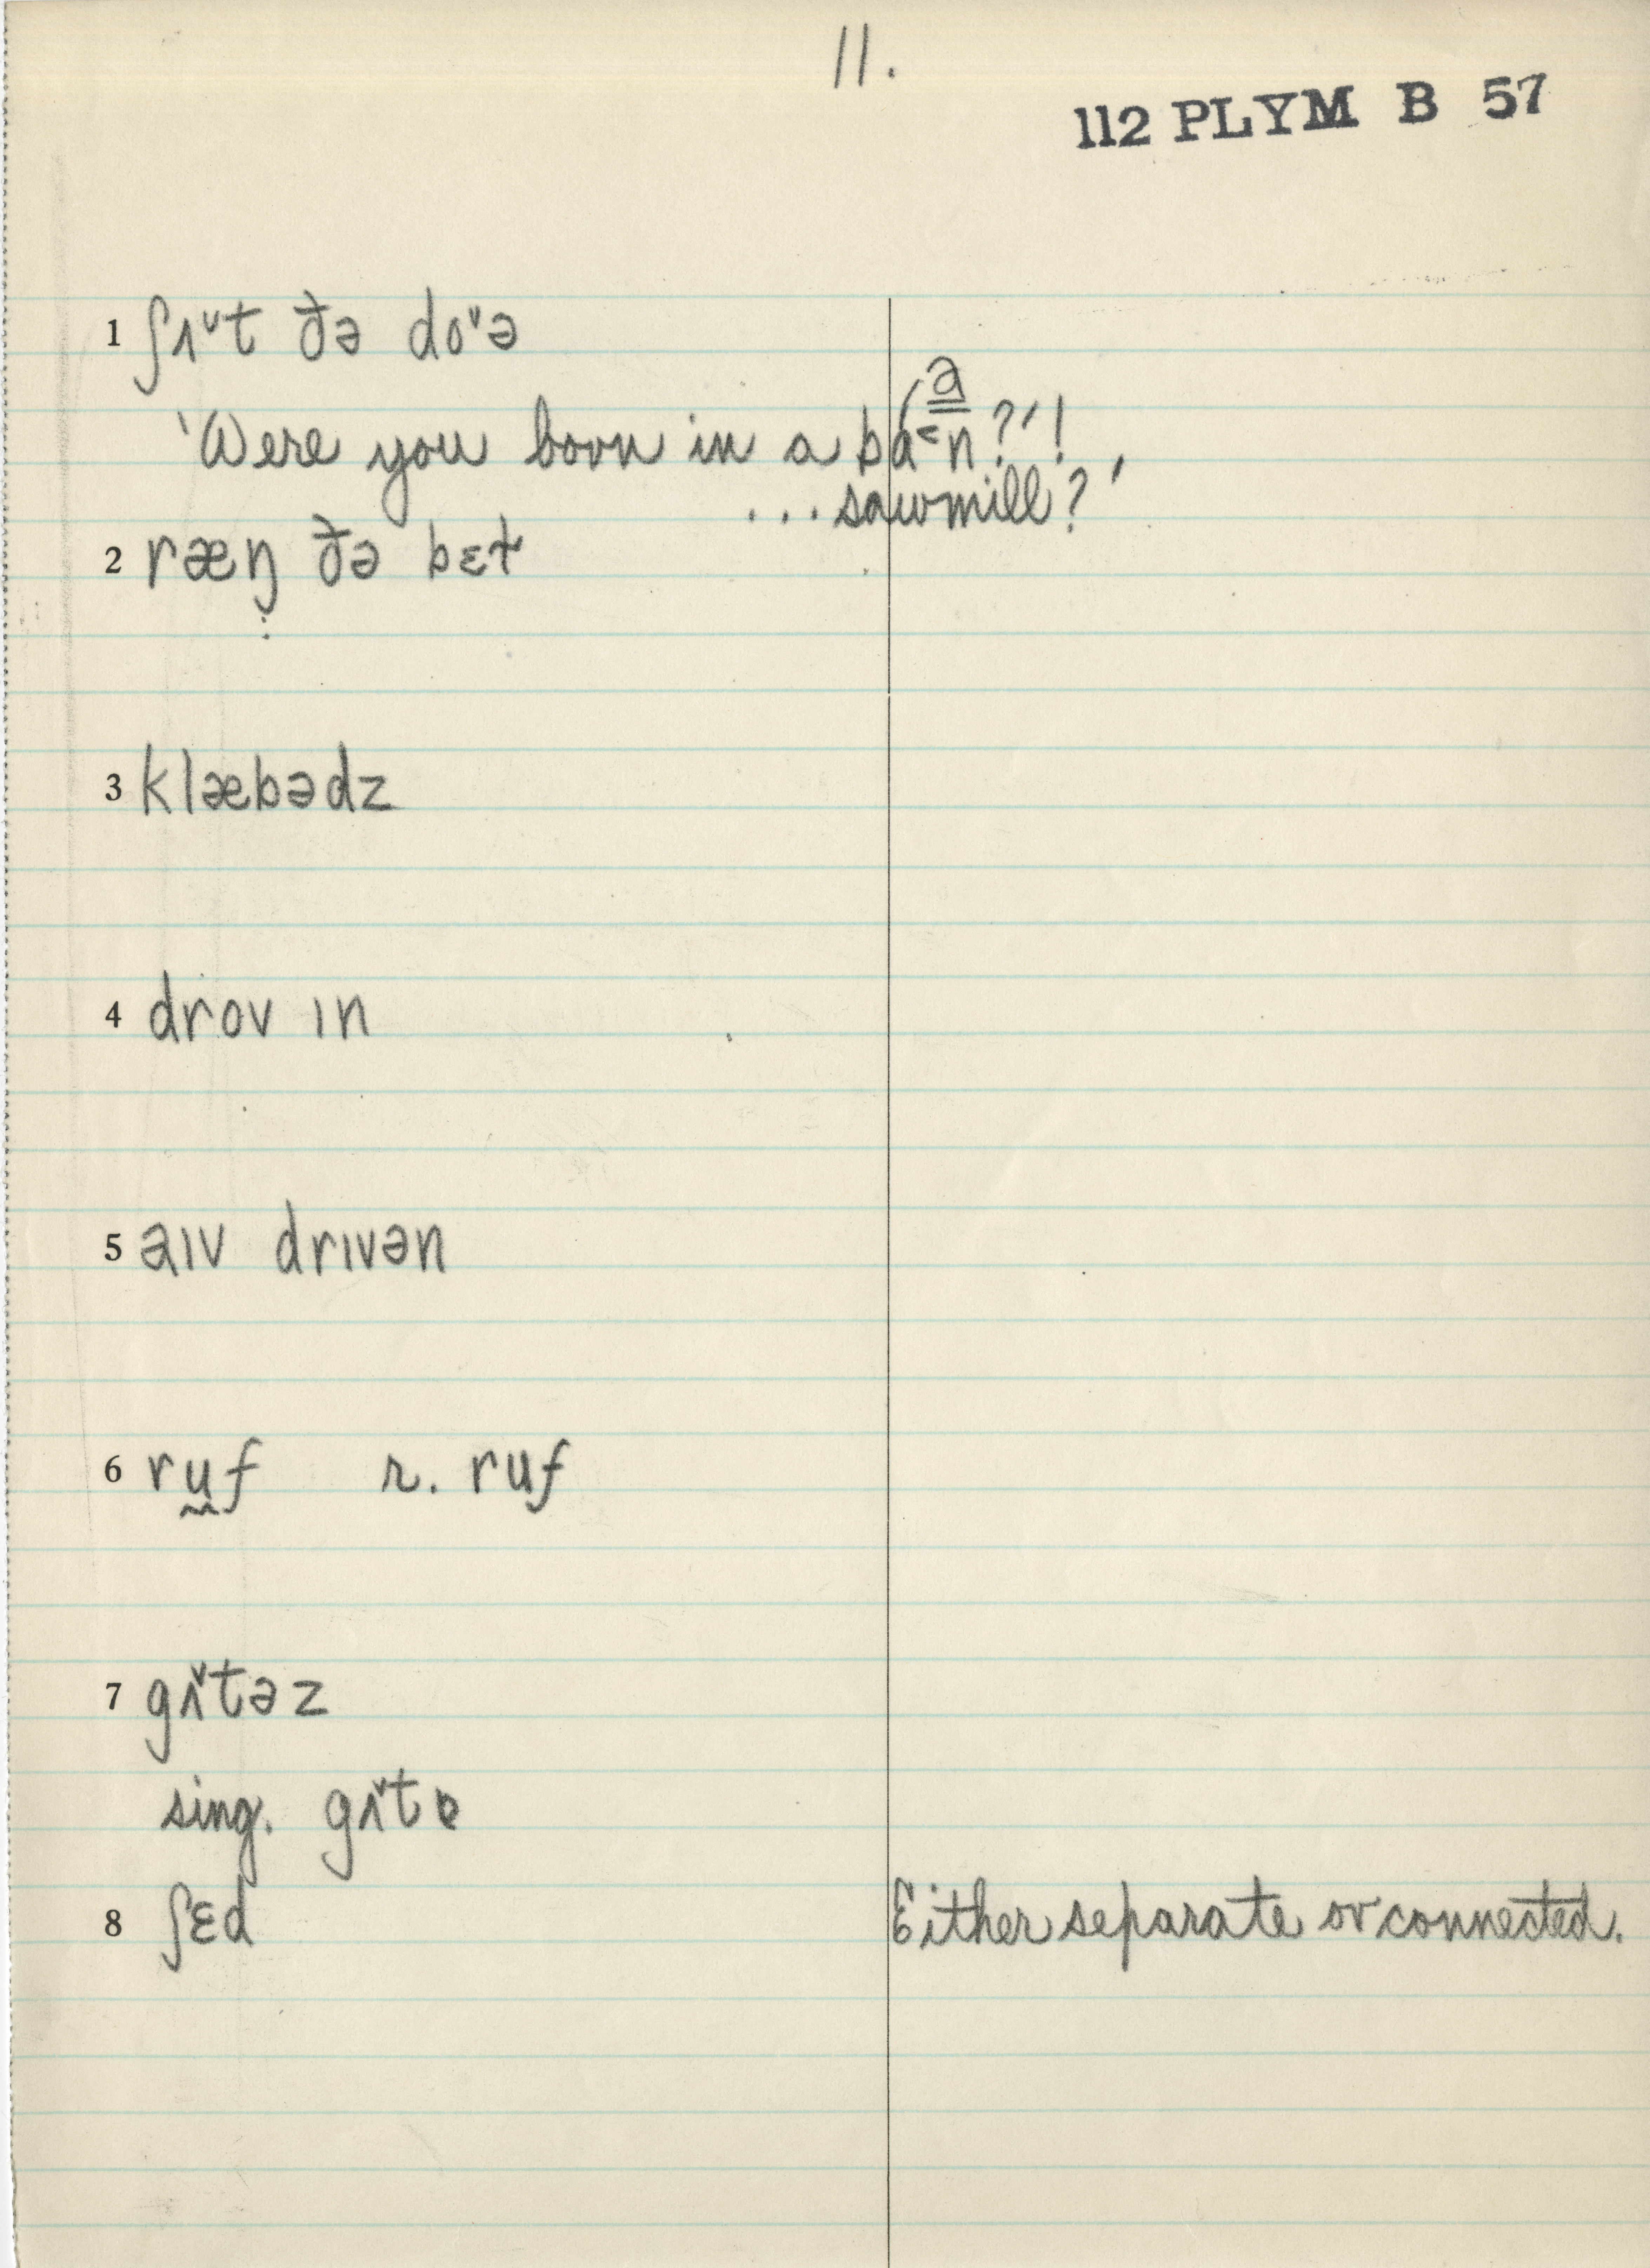 11.
112 PLYM B 57
1 ʃʌᵛt ðə doᵛə
'Were you born in a ba˂n?'!
a
...sawmill?'
2 ræŋ ðə bɛɫ
3 klæbədz
4 drov ɪn
5 aɪv drɪvən
6 ru̼f r. ruf
7 gʌᵛtəz
sing. gʌᵛtɐ
8 ʃɛd Either separate or connected.